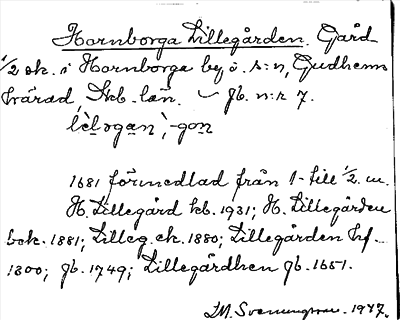 Hornborga Lillegården. Gård
1/2 ek. i Hornborga by o. s:n, Gudhems
härad, Skb. län. jb. n:r 7.
lìlogan, -gon
1681 förmedlad från 1 till 1/2 m.
H. Lillegård kb. 1931; H. Lillegården
1881; Lilleg. ek. 1880; Lillegården
1800; jb. 1749; Lillegårdhen jb. 1651.
1947.